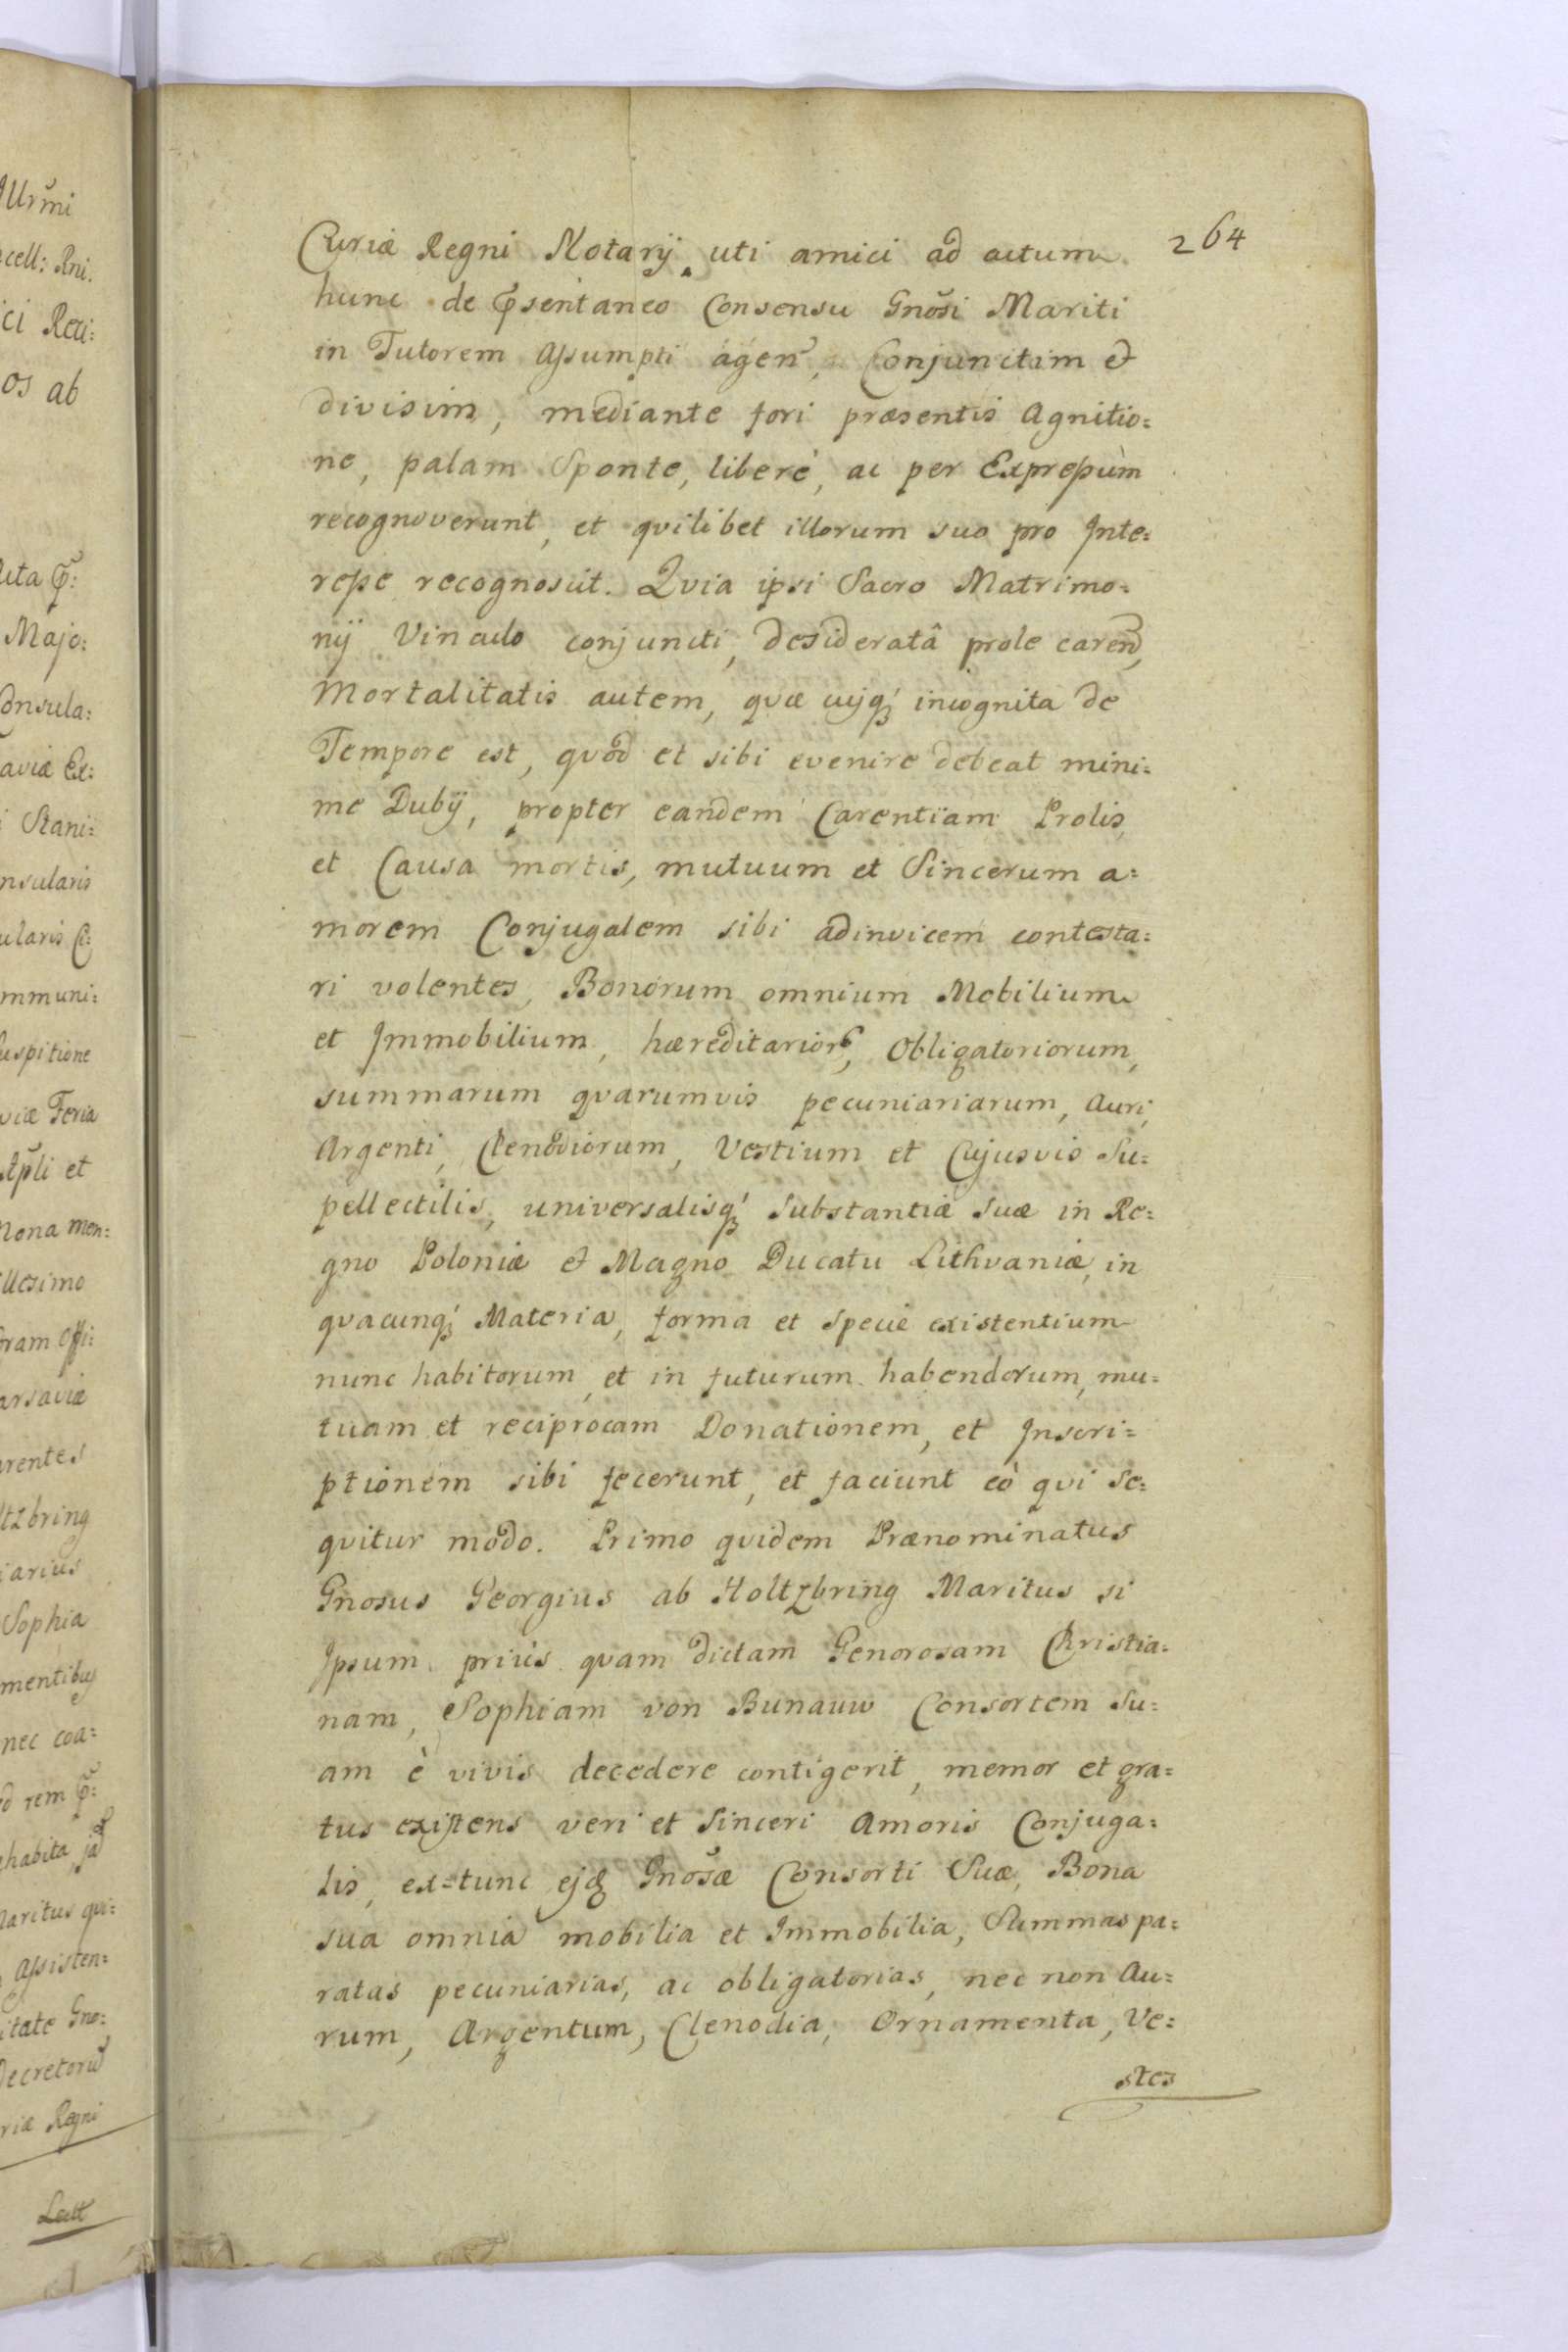 264
Curiæ Regni Notarij, uti amici ad actum
hunc de p̄sentaneo Consensu Gnõsi Mariti
in Tutorem Assumpti agen, Conjunctim et
divisim, mediante fori præsentis Agnitio=
ne, palam Sponte, liberè, ac per Expressùm
recognoverunt, et qvilibet illorum suo pro Inte=
resse recognoscit. Qvia ipsi Sacro Matrimo=
nij Vinculo conjuncti, desideratâ prole caren,
Mortalitatis autem, qvæ cujq́; incognita de
Tempore est, qvòd et sibi evenire debeat mini=
me Dubij, propter eandem Carentiam Prolis,
et Causa mortis, mutuum et Sincerum a=
morem Conjugalem sibi adinvicem contesta=
ri volentes, Bonorum omnium Mobilium
et Immobilium, hæreditarior, Obligatoriorum,
summarum qvarumvis pecuniariarum, Auri,
Argenti, Clenodiorum, Vestium et Cujusvis Su=
pellectilis, universalisq́; Substantiæ Suæ in Re=
gno Poloniæ et Magno Ducatu Lithvaniæ, in
qvacunq́; Materia, forma et Specie existentium
nunc habitorum, et in futurum habendorum, mu=
tuam et reciprocam Donationem, et Inscri=
ptionem sibi fecerunt, et faciunt eò qvi se=
qvitur modo. Primo qvidem Prænominatus
Gnosus Georgius ab Holtzbring Maritus si
Ipsum priùs qvam dictam Generosam Christia=
nam, Sophiam von Bunauw Consortem Su=
am è vivis decedere contigerit, memor et gra=
tus existens veri et Sinceri Amoris Conjuga=
lis, ex=tunc ejd Gnõsæ Consorti Suæ, Bona
sua omnia mobilia et Immobilia, Summas pa=
ratas pecuniarias, ac obligatorias, nec non Au=
rum, Argentum, Clenodia, Ornamenta, Ve=
stes